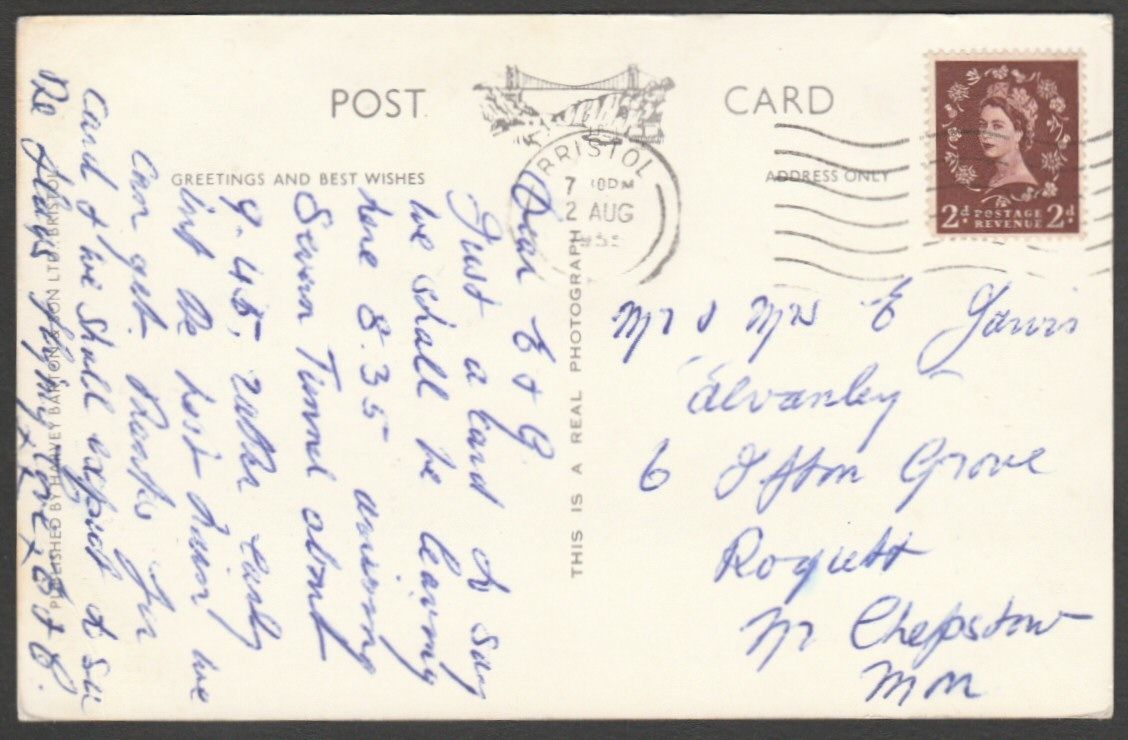 POST CARD
GREETINGS AND BEST WISHES
ADDRESS ONLY
BRISTOL
7
2 AUG
2d POSTAGE REVENUE 2d
THIS IS A REAL PHOTOGRAPH
PUBLISHED BY HARVEY BARTON & SON LTD. BRISTOL
Dear E & G
Just a card to say
we shall be leaving
here 8.35 arriving
Severn Tunnel about
9.45, rather early
but the best train we
can get. Thanks for
card & we shall expect to see
the flags flying. Love
Mr & Mrs E Jarvis
Alvanley
6 Ifton Grove
Rogiett
Nr Chepstow
Mon